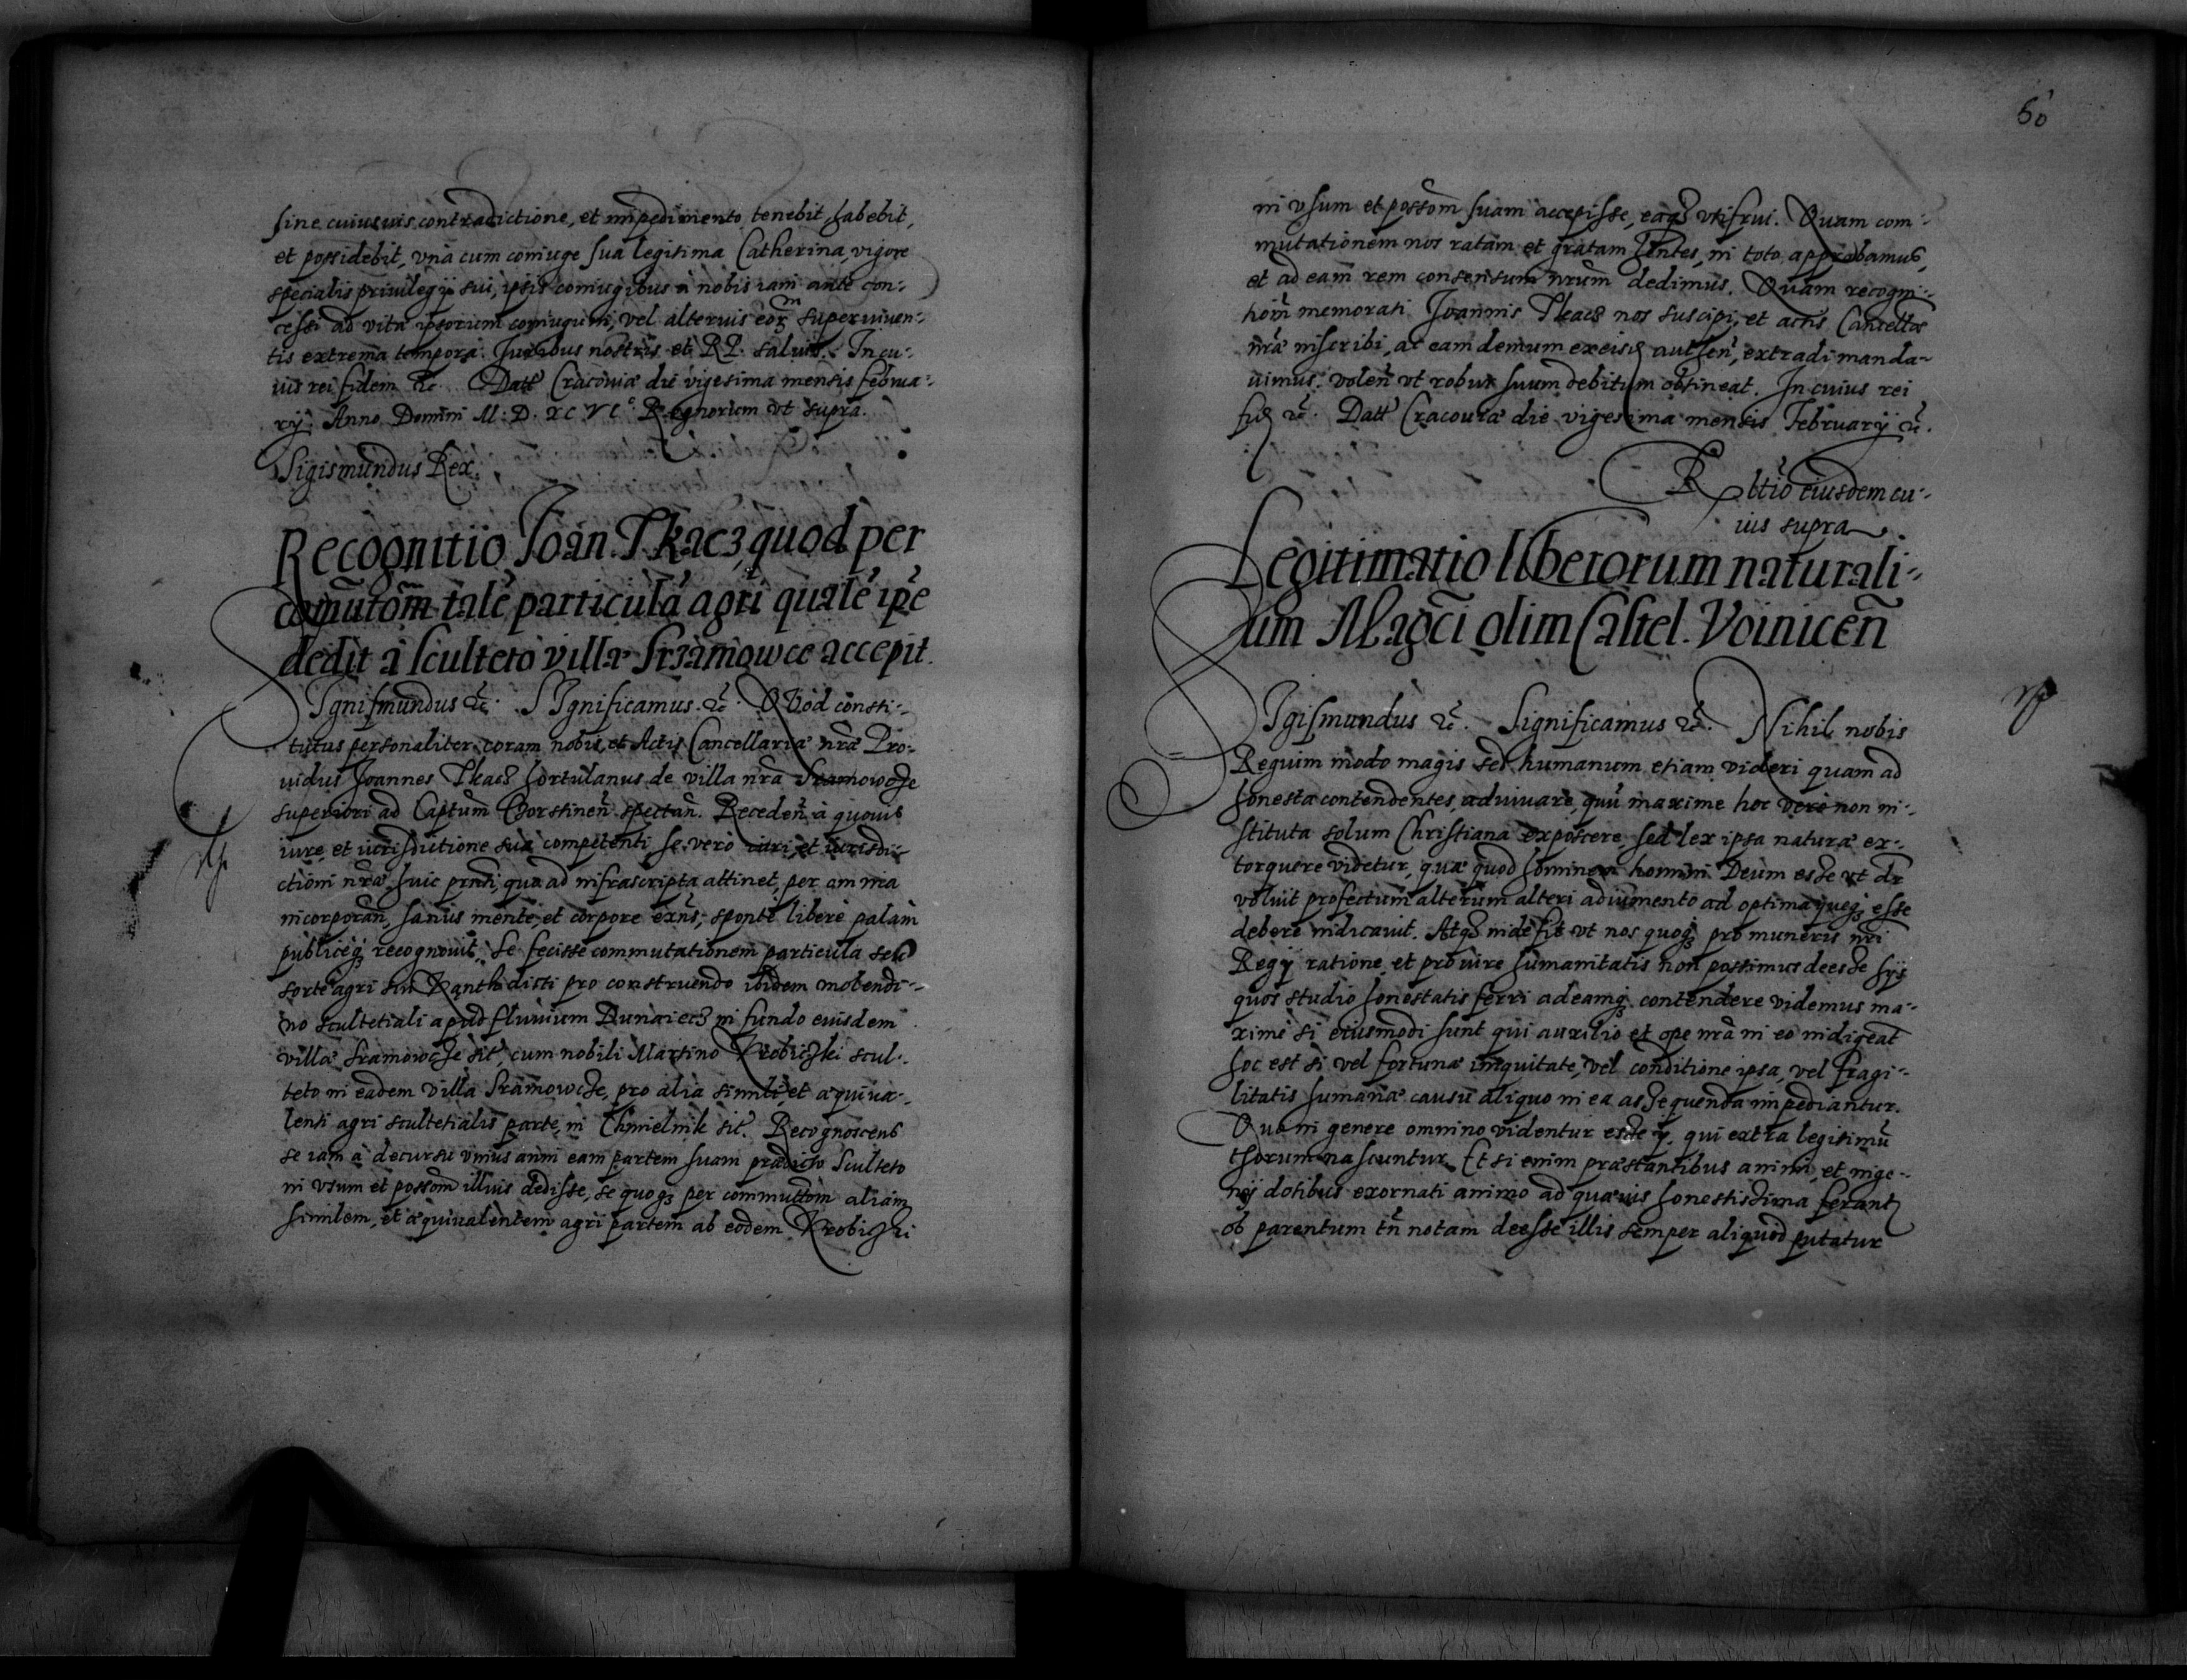 sine cuiusuis contradictione, et impedimento tenebit, habebit,
et possidebit, vna cum coniuge sua legitima Catherina, vigore
specialis priuilegij sui, ipsis coniugibus à nobis iam ante con-
cessi ad vita ipsorum coniugum, vel alterius eorũ superuiuen-
tis extrema tempora. Iuribus nostris et RP. saluis. In cu-
ius rei fidem etc. Datt Cracouiæ die vigesima mensis Februa-
rij. Anno Domini M: D. XC VI° Regnorum vt supra.
Sigismundus Rex.
Recognitio Joan. Tkacz, quod per
comutom̃ talẽ particulã agri qualẽ ip̃e
dedit à sculteto villæ Srzamowce accepit.
SIgnismundus etc. SIgnificamus. etc. QVod consti-
tutus personaliter coram nobis, et Actis Cancellariæ nr̃æ Pro-
uidus Joannes Tkacz hortulanus de villa nr̃a Sramowcze
superiori ad Captum̃ Czorstineñ spectañ. Recedeñ à quouis
iure, et iurisdictione sua competenti se vero iuri, et iurisdi-
ctioni nr̃æ huic prnti, qua ad infrascripta attinet, per omnia
incorporañ, sanus mente, et corpore exñs, sponte libere palam
publiceq; recognouit, se fecisse commutationem particulæ seu
sorte agri sui dicti pro construendo ibidem molendi-
no scultetiali apud fluuium Dunaiecz in fundo eiusdem
villæ Sramowcze sit, cum nobili Martino Krobiczki scul-
teto in eadem villa Sramowcze, pro alia simili, et æquiua-
lenti agri scultetialis parte, in Chmielnik sit. Recognoscens
se iam à decursu vnius anni eam partem suam prædicto Sculteto
in vsum et possom̃ illius dedisse, se quoq; per commuttom̃ aliam
similem, et æquiualentem agri partem ab eodem Krobiczki
60
in vsum et possom̃ suam accepisse, eaq; vtifrui. Quam com-
mutationem nos ratam et gratam hentes, in toto approbamus,
et ad eam rem consensum nr̃um dedimus. Quam recogni-
tiom̃ memorati Joannis Tkacz nos suscipi, et actis Cancellæ
nr̃æ inscribi, ac eam demum ex eisd autheñ, extradi manda-
uimus. voleñ vt robur suum debitum obtineat. In cuius rei
fid etc. Datt Cracouiæ die vigesima mensis February etc.
Rltio eiusdem cu-
ius supra
Legitimatio liberorum naturali-
um Magc̃i olim Castel. Voiniceñ
SIgismundus etc. Significamus etc. Nihil nobis
Regium modo magis sed humanum etiam videri quam ad
honesta contendentes, adiuuare, quũ maxime hoc vero non in-
stituta solum Christiana exposcere sed lex ipsa naturæ ex-
torquere videtur, quæ quod hominem homini Deum esse vt
voluit profectum alterum alteri adiumento ad optima queq; esse
debere indicauit. Atq; inde fit vt nos quoq; pro muneris nr̃i
Regij ratione, et pro iure humanitatis non possimus deesse hijs
quos studio honestatis ferri adeamq; contendere videmus ma-
xime si eiusmodi sunt qui auxilio et ope nr̃a in eo indigeant
hoc est si vel fortunæ iniquitate, vel conditione ipsa, vel fragi-
litatis humanæ causu aliquo in ea assequenda impediantur.
Quo in genere omnino videntur esse ij, qui extra legitimũ
thorum nascuntur. Etsi enim præstantibus animi, et inge-
nij dotibus exornati animo ad quæuis honestissima ferant
ob parentum tñ notam deesse illis semper aliquod putatur